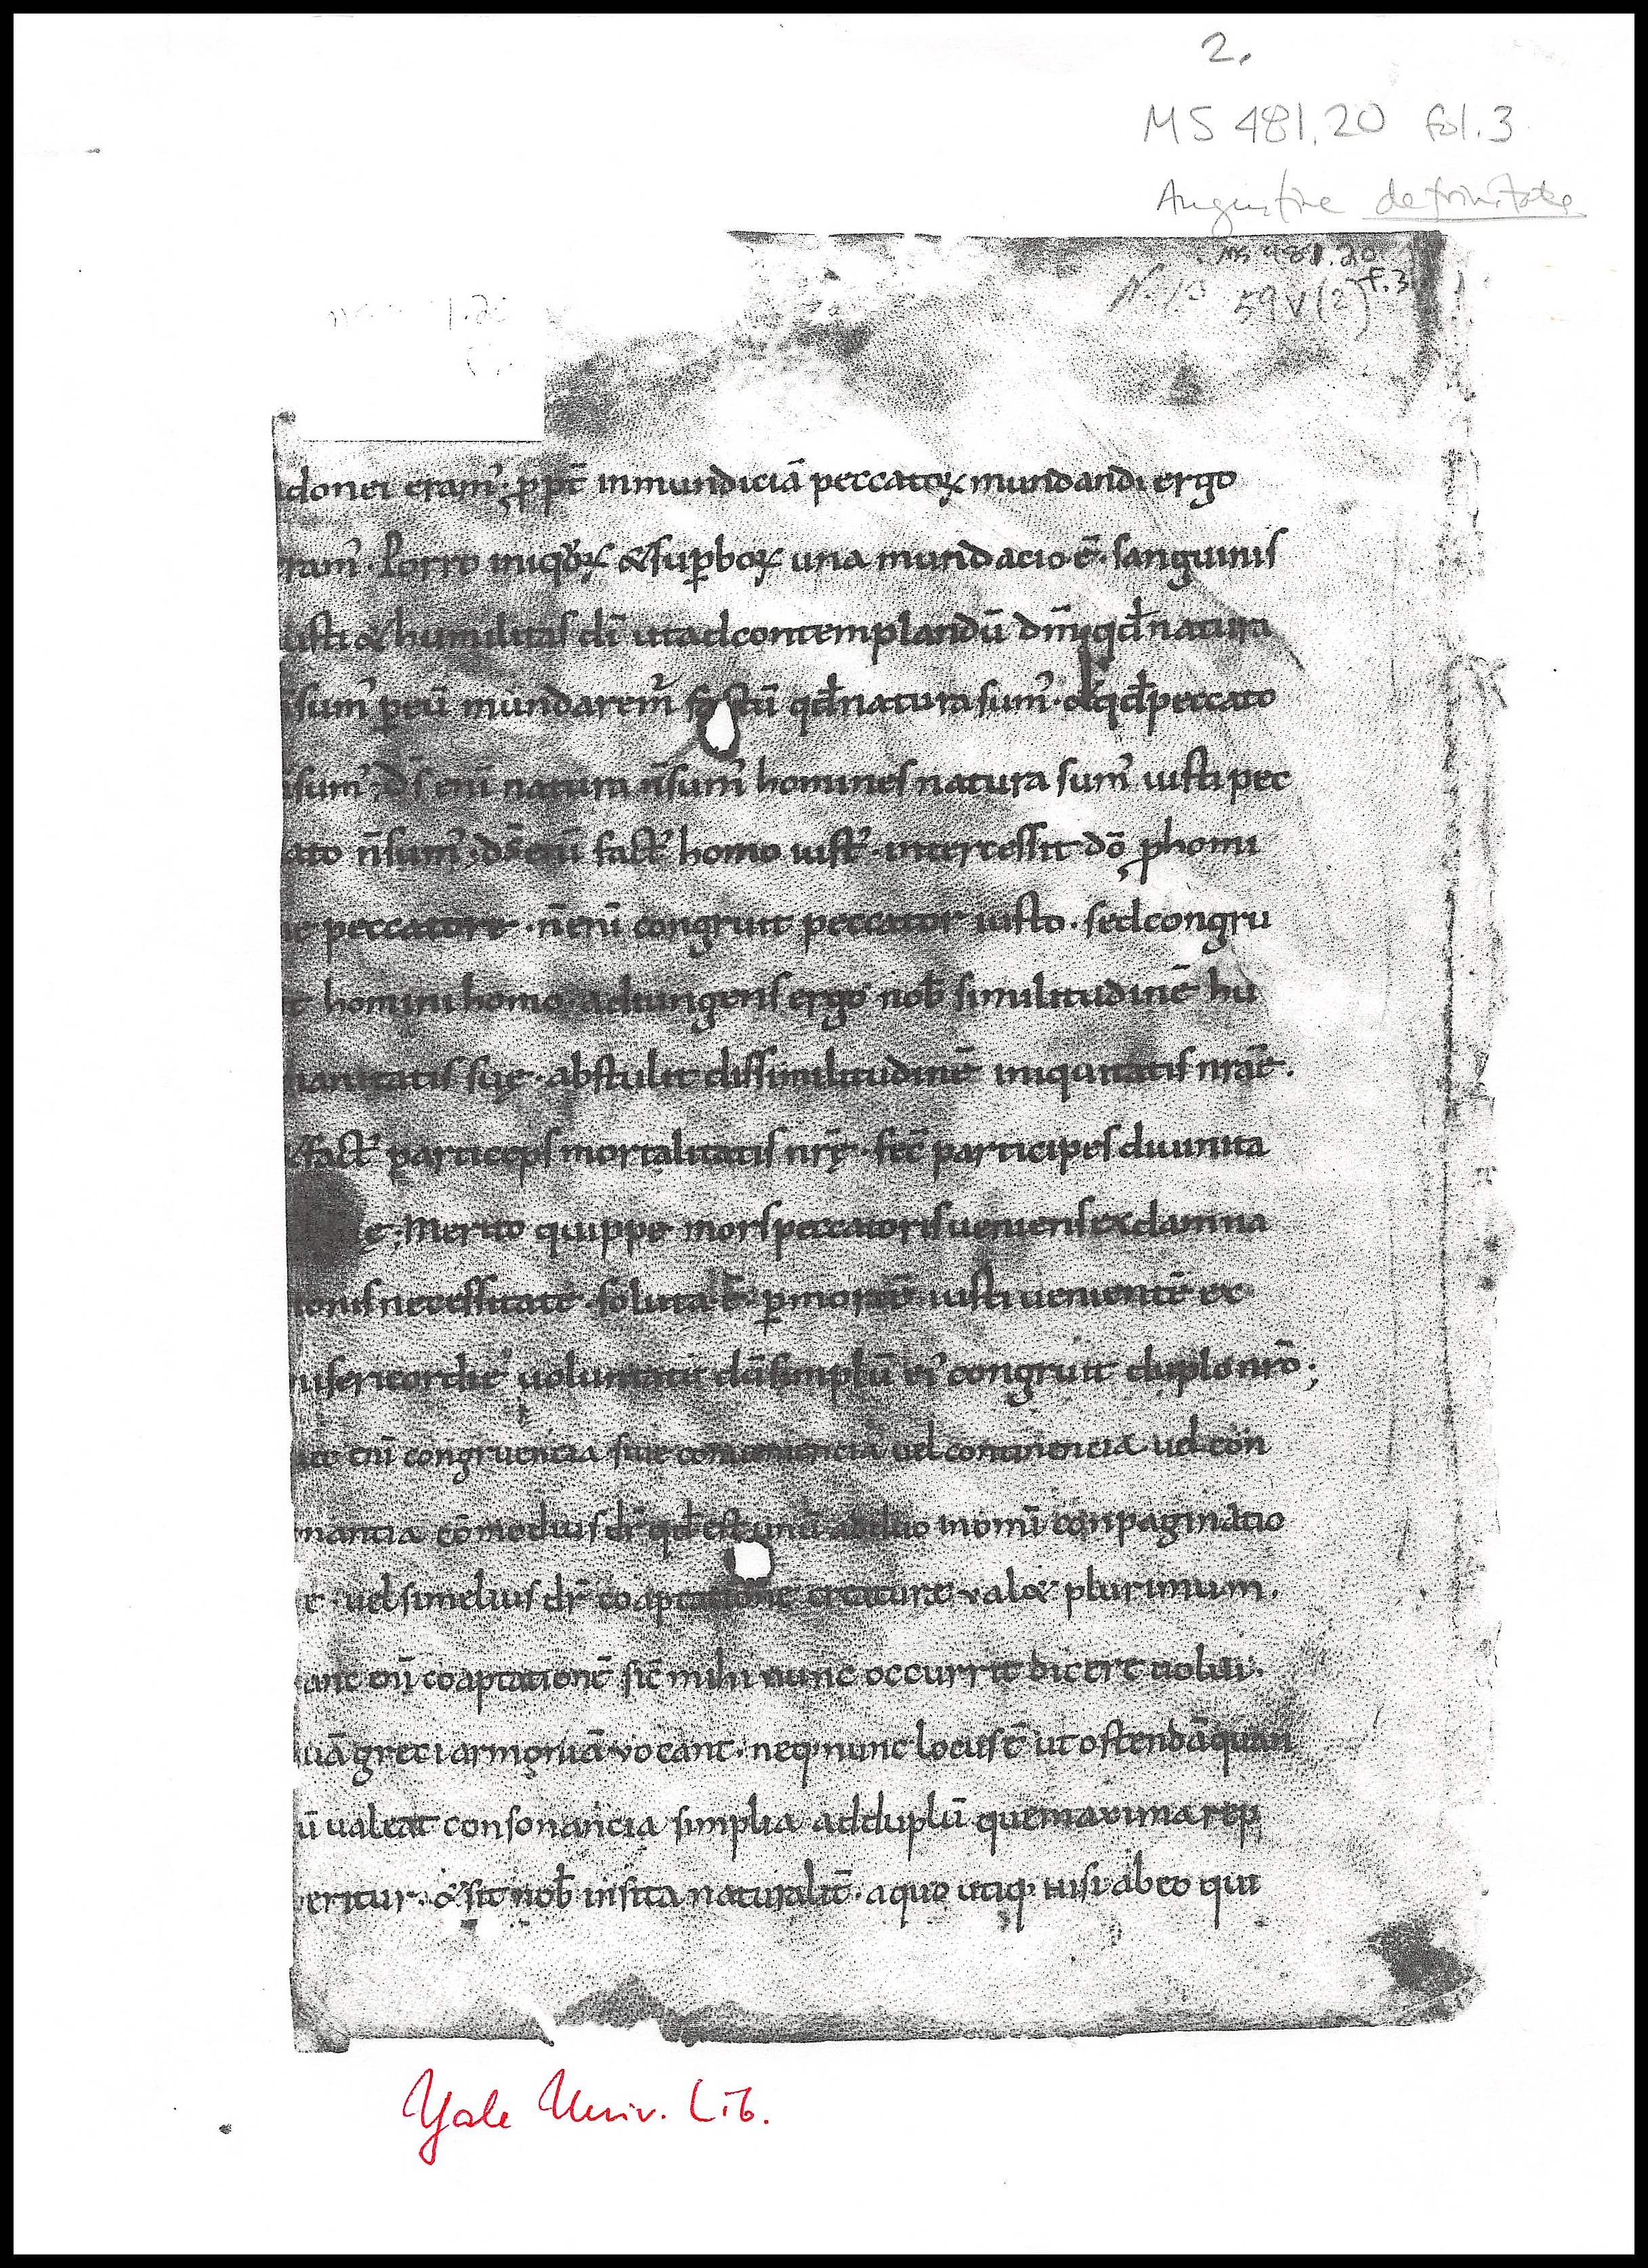 2.
MS 481.20 fol. 3
Augustine de trinitate
MS 481.20
f. 3
59 v (2)
idonei eram᾽; ꝓpt̄ inmundiciā peccatoꝝ mundandi ergo
eram᾽. Porro iniqoꝝ & suꝑboꝝ una mundacio ē. sanguinis
iusti & humilitas dī ut ad contemplandū dm̄ qd̄ natura
sum᾽ ꝑ eū mundarem᾽ qd̄ natura sum᾽. & qd̄ peccato
sum᾽; ds̄ enī natura n̄ sum᾽ homines natura sum᾽ iusti pec
ato n̄ sum᾽. ds̄ enī fact᾽ homo iust᾽. intercessit dō ꝓ homi
ne peccatore. n̄ enī congruit peccator iusto. sed congru
it homini homo. adiungens ergo nob̄ similitudinē hu
manitatis suę. abstulit dissimilitudinē iniquitatis nrāe.
& fact᾽ particeps mortalitatis nrę̄. fec̄ participes diuinita
ę; Merito quippe mors peccatoris ueniens ex damna
ionis necessitate. soluta ē ꝑ mortē iusti uenientē ex
misericordie uoluntate dū simplū ei᾽ congruit duplo nrō;
ec enī congruencia siue conueniencia uel continencia uel con
nancia cōmodius dr̄ qd̄ est unū ad duo in omī conpaginatio
e. uel si melius dr̄ coaptatione creature ualet plurimum.
anc enī coaptationē sic̄ mihi nunc occurrit dicere uolui.
uā greci armoniā uocant. neq; nunc locus ē ut ostendā quan
ū ualeat consonancia simpli a ad duplū que maxima rep
eritur. & sit nob̄ insita naturalit̄. a quo utiq; nisi ab eo qui
Yale Univ. Lib.